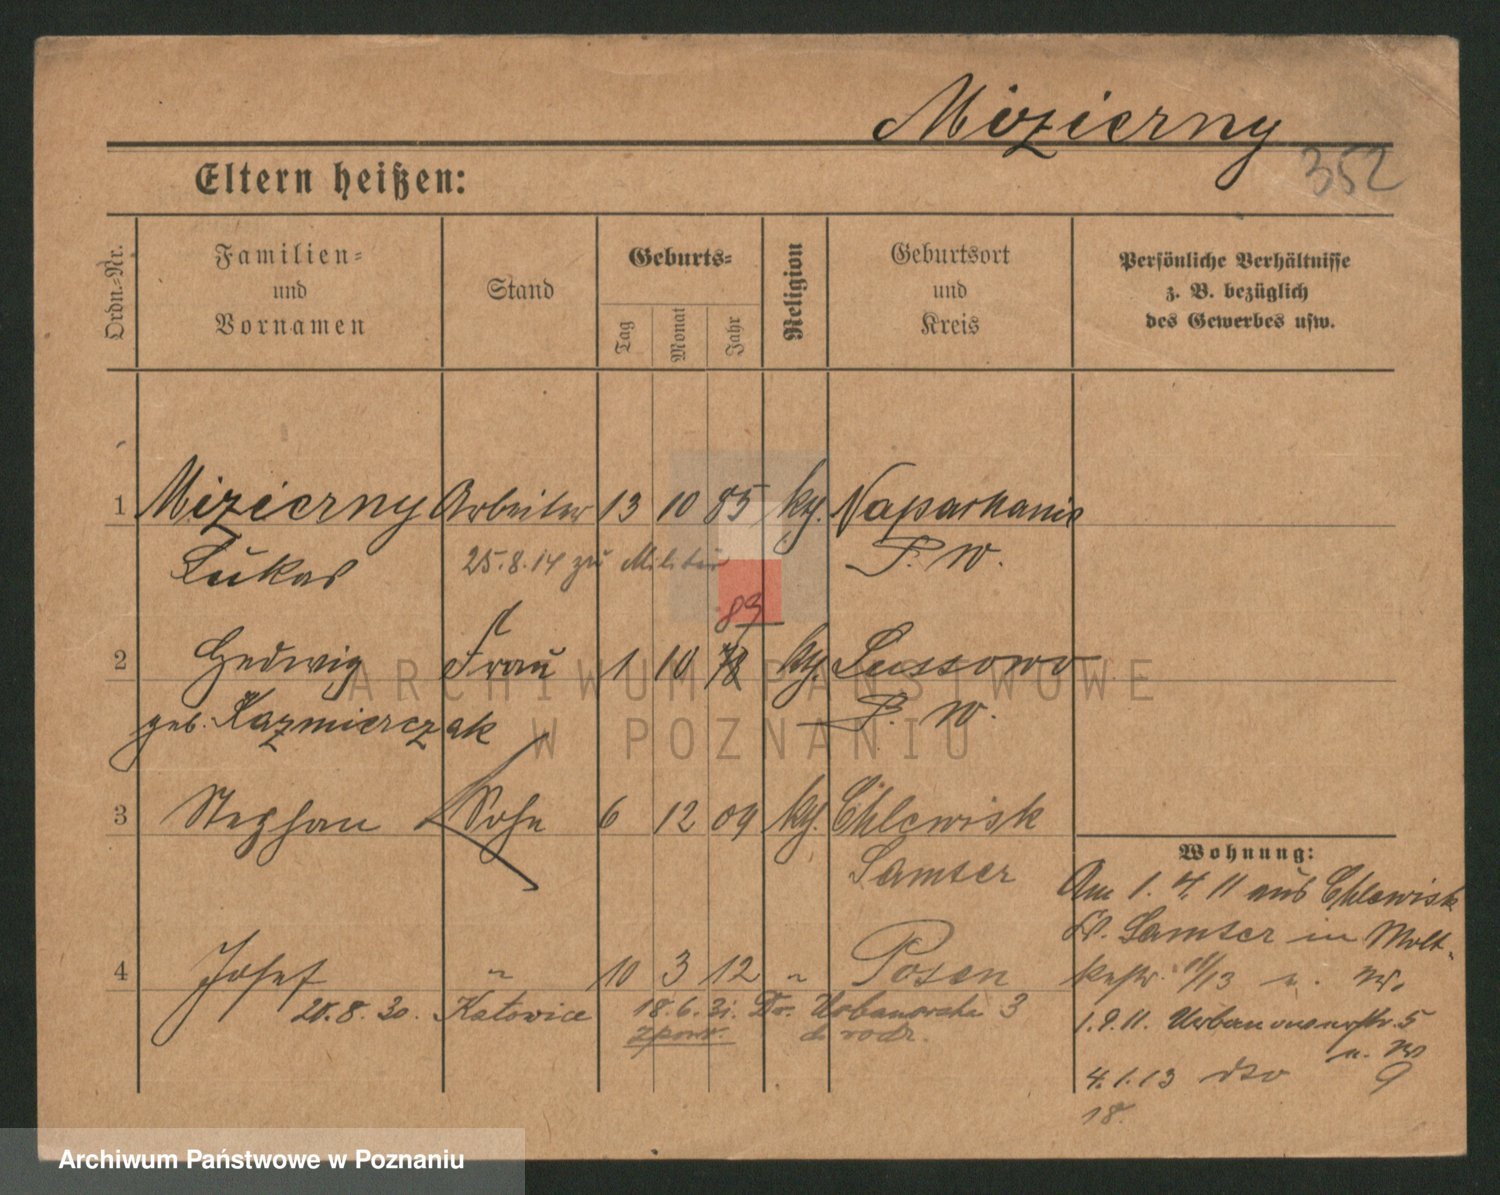 Mizierny
352
Eltern heißen:
Ordn.-Nr.
Familien-
und
Vornamen
Stand
Geburts-
Tag
Monat
Jahr
Religion
Geburtsort
und
Kreis
Persönliche Verhältnisse
z. B. bezüglich
des Gewerbes usw.
1 Mizierny Arbeiter 13 10 85 kg. Naparkanie
Lukas 25.8.14 zu Militär P. W.
83
2 Hedwig Frau 1 10 78 kg. Lussowo
geb. Kazmierczak P. W.
3 Stephan Sohn 6 12 09 kg. Chlewisk
Samter
4 Josef " 10 3 12 " Posen
20.8.30. Katowice 18.6.31. Do. Urbanowska 3
zpow. d. rodz.
Wohnung:
Am 1. 4. 11 aus Chlewisk
Kr. Samter in Molt-
kestr. 11/13 n. W.
1.9.11. Urbanowerstr. 5
n. W
4.1.13 dto 9
18.
ARCHIWUM PAŃSTWOWE
W POZNANIU
Archiwum Państwowe w Poznaniu